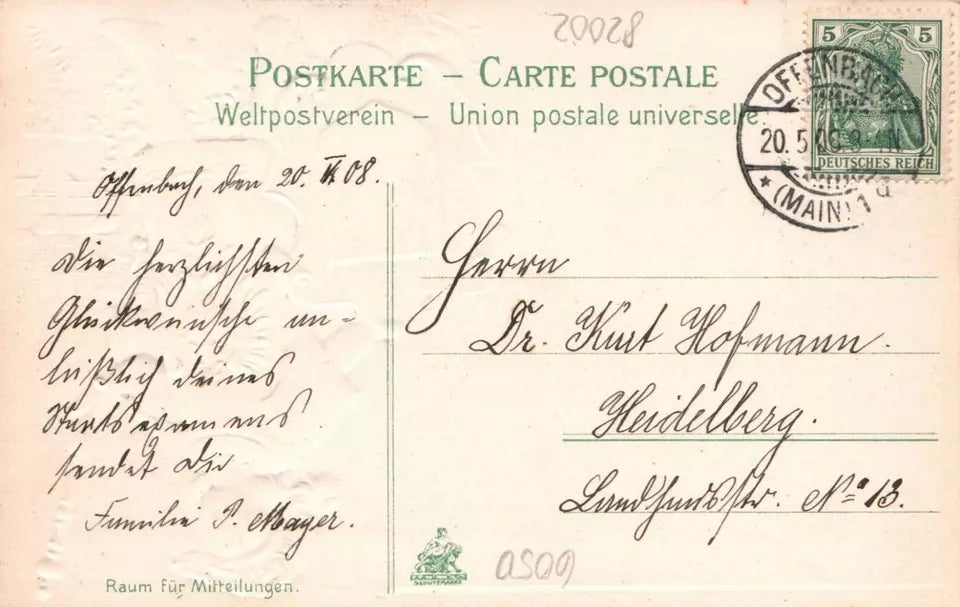 20028
POSTKARTE – CARTE POSTALE
Weltpostverein – Union postale universelle.
5 5
DEUTSCHES REICH
OFFENBACH
20. 5
(MAIN) 1 d
Offenbach, den 20. V. 08.
Die herzlichsten
Glückwünsche an-
läßlich deines
Staatsexamens
sendet dir
Familie P. Mayer.
Herrn
Dr. Kurt Hofmann.
Heidelberg.
Landhausstr. No 13.
Raum für Mitteilungen.
SCHUTZMARKE
0509